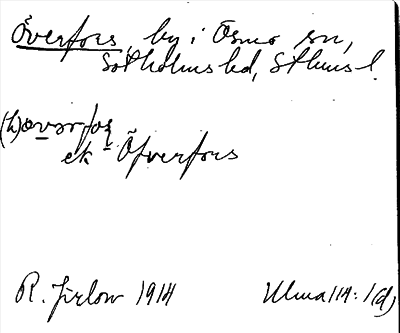 Överfors, by i Ösmo sn,
Sotholms hd, Sthms l.
(h)øvərfoʂ
ek Öfverfors
R. Jirlow 1914 Ulma 114:1(d)